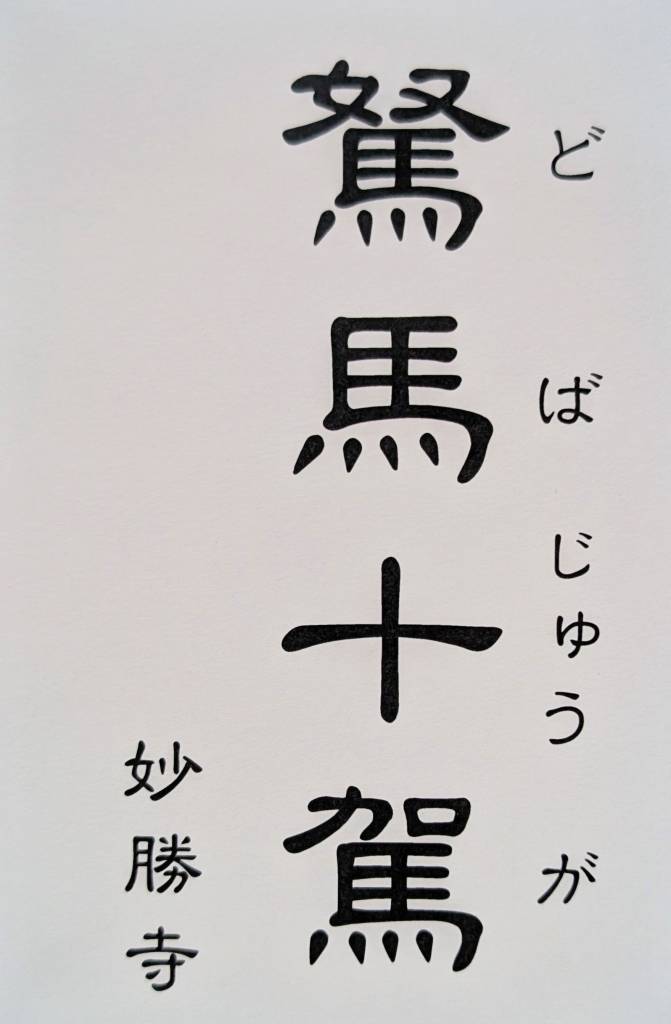 どばじゅうが
駑馬十駕
妙勝寺